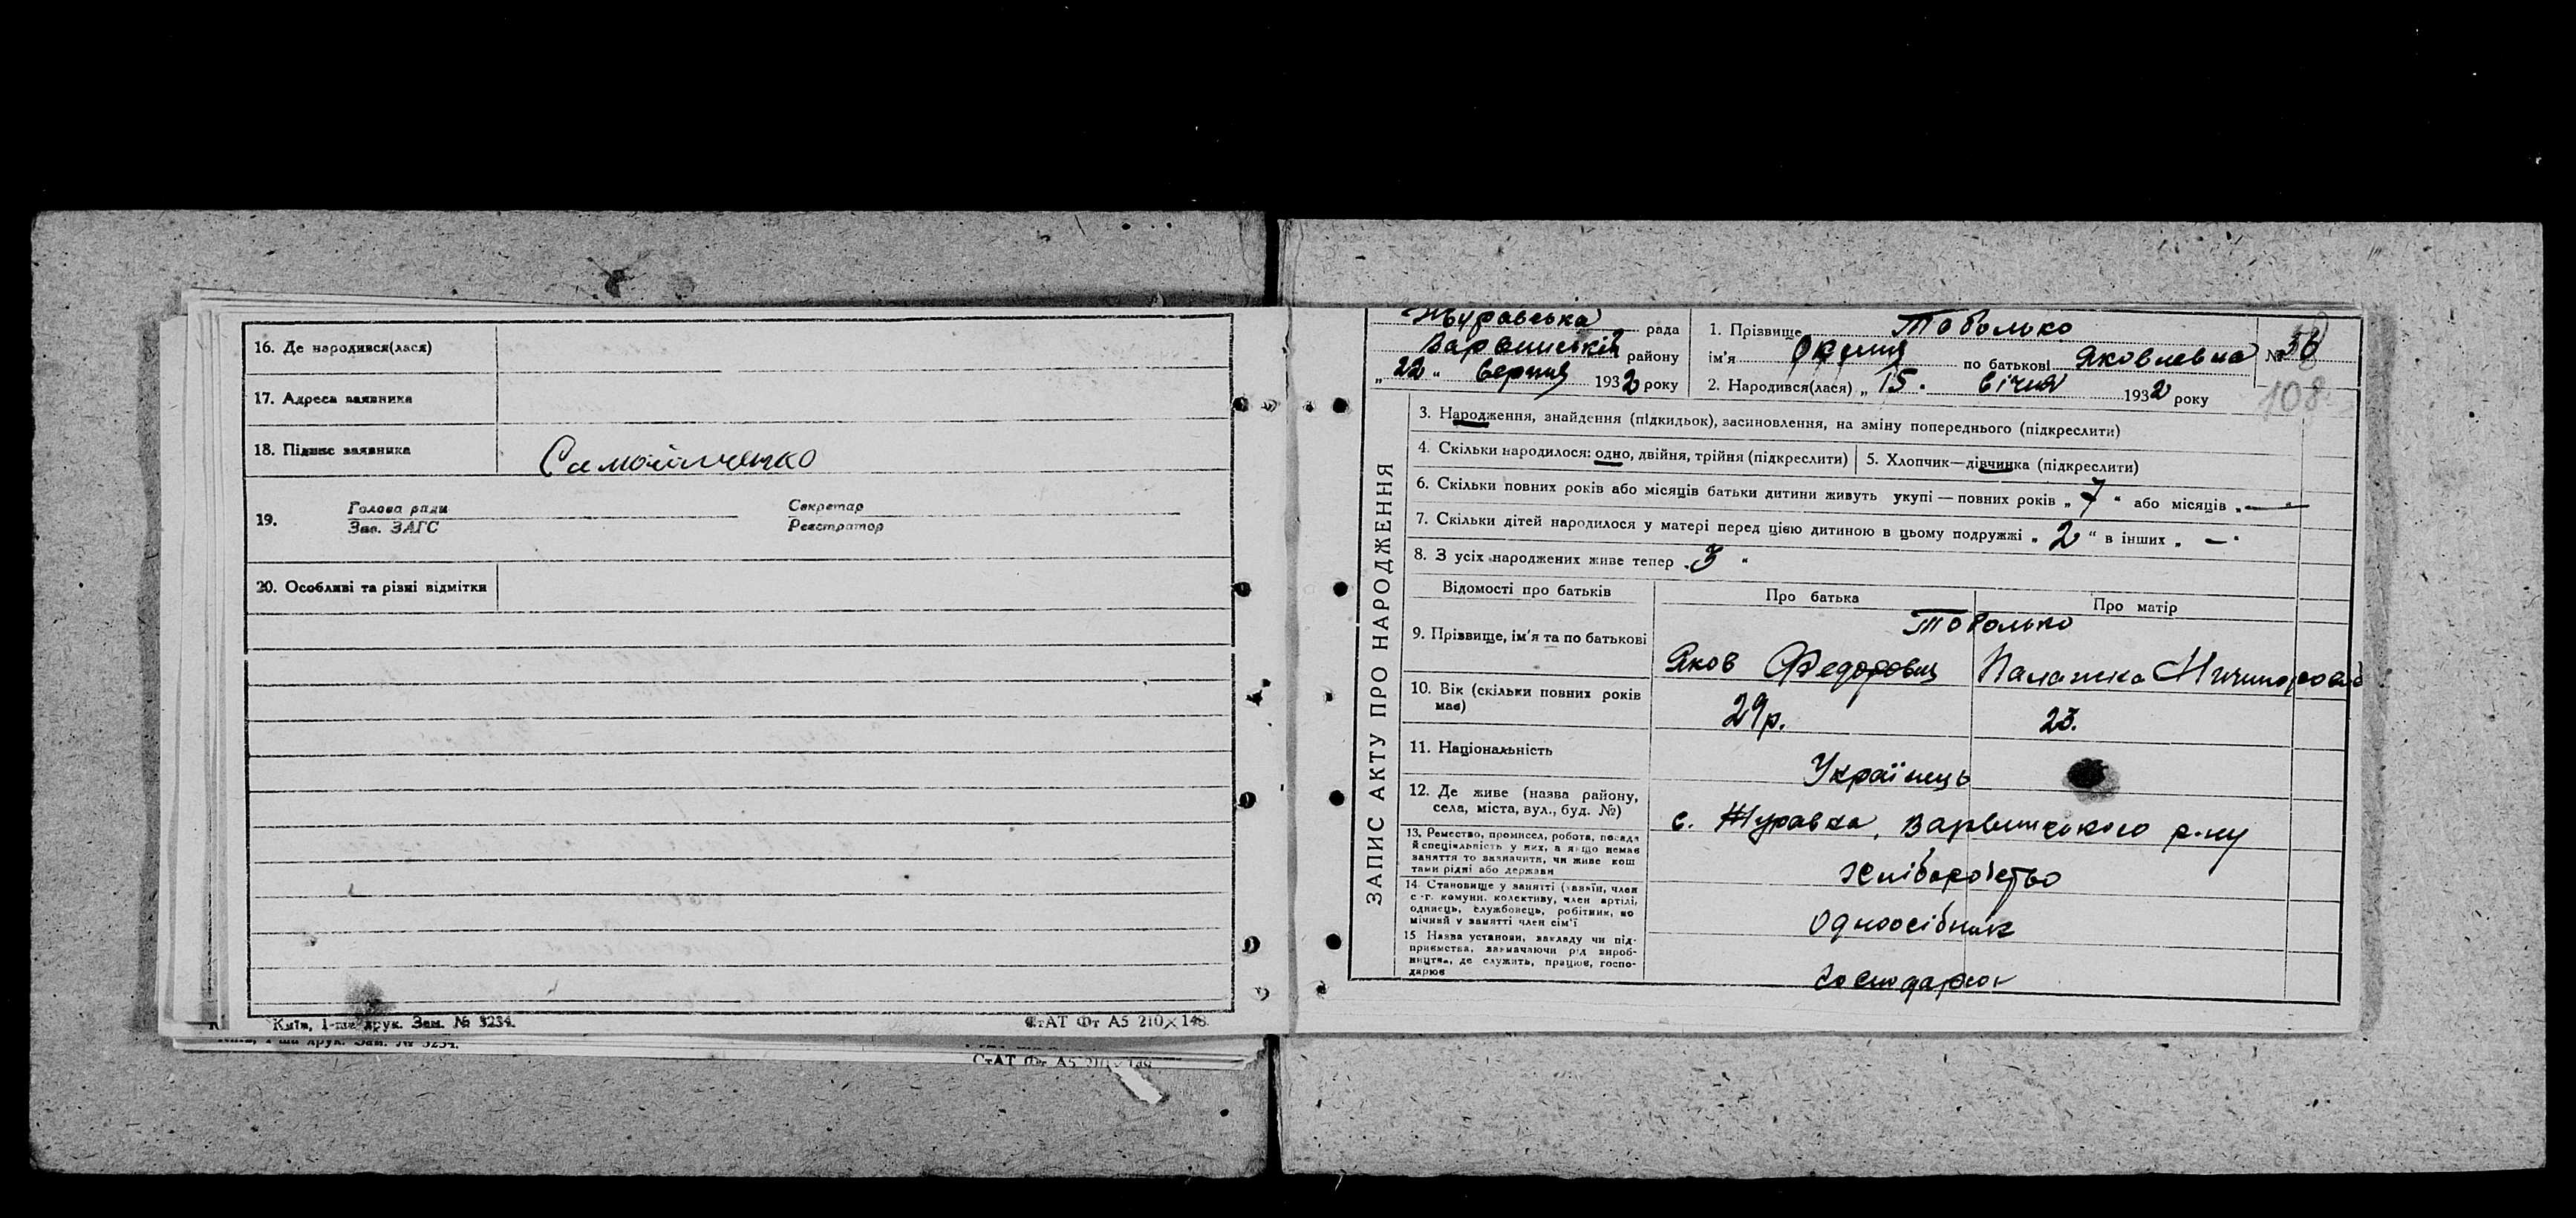 16. Де народився(лася)
17. Адреса заявника
18. Підпис заявника Самойленко
19. Голова ради Секретар
Зав. ЗАГС Реєстратор
20. Особливі та різні відмітки
Київ, 1-ша друк. Зам. № 3234.
СтАТ Фт А5 210×148.
СтАТ Фт А5
ЗАПИС АКТУ ПРО НАРОДЖЕННЯ
Журавська рада
Варвинський району
„22“ серпня 1932 року
1. Прізвище Тоболько
ім'я по батькові Яковлевна
2. Народився(лася) „15. січня 1932 року
№ 36
108
3. Народження, знайдення (підкидьок), засиновлення, на зміну попереднього (підкреслити)
4. Скільки народилося: одно, двійня, трійня (підкреслити)
5. Хлопчик—дівчинка (підкреслити)
6. Скільки повних років або місяців батьки дитини живуть укупі — повних років „7“ або місяців „—“
7. Скільки дітей народилося у матері перед цією дитиною в цьому подружжі „2“ в інших „—“
8. З усіх народжених живе тепер „3“
Відомості про батьків Про батька Про матір
9. Прізвище, ім'я та по батькові Тоболько
Яков Федорович Палажка
10. Вік (скільки повних років має) 29р. 23.
11. Національність Українець
12. Де живе (назва району,
села, міста, вул., буд. №) с. Журавка, Варвинського р-ну
13. Ремество, промисел, робота, посада
й спеціяльність у них, а якщо немає
заняття то зазначити, чи живе кош
тами рідні або держави
хліборобство
14. Становище у занятті (хазяїн, член
с.-г. комуни, колективу, член артілі,
одинець, службовець, робітник, по
мічний у занятті член сім'ї
Одноосібник
15. Назва установи, закладу чи під-
приємства, зазначаючи рід вироб-
ництва, де служить, працює, госпо-
дарює